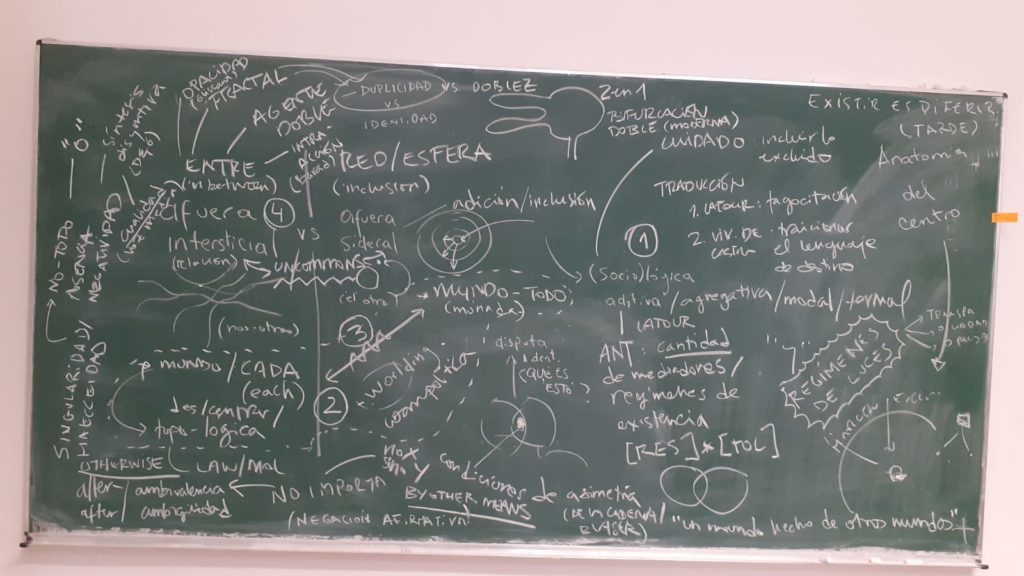 ORALIDAD
FRACTAL
AGENTE
DOBLE
DUPLICIDAD
VS
IDENTIDAD
VS DOBLEZ
2 en 1
BIFURCACIÓN
DOBLE (MODERNA)
CUIDADO: incluir lo
excluido
EXISTIR ES DIFERIR
(TARDE)
Anatomía
del
centro
síntesis
disyuntiva
"O"
NO-TODO
AUSENCIA
NEGATIVIDAD
SINGULARIDAD/
HAECCEIDAD
ENTRE
(in between)
INTRA
afuera
4
Intersticial
(relación)
VS
RED/ESFERA
(inclusión)
afuera
Sideral
uncommons
(el otro)
(nos-otros)
adición/inclusión
TRADUCCIÓN
1. LATOUR: fagocitación
2. VIV. DE
CASTRO
el lenguaje
de destino
1
(Socio)lógica
aditiva/agregativa/modal/formal
LATOUR
ANT: cantidad
de mediadores/
regímenes de
existencia
[RES]*[TOC]
"un mundo hecho de otros mundos"+
REGÍMENES
DE LUCES
3
MUNDO-TODO
(monada)
disputa
ident.
(QUÉ ES
ESTO)?
2
+ worlding
mundo/CADA
(each)
des/centrar/
topo-lógica
OTHERWISE
LAW/MOL
alter-/ambivalencia
after/ambigüedad
NO IMPORTA
(NEGACIÓN AFIRMATIVA)
BY OTHER MEANS
condiciones de asimetría
(DE LA CADENA/